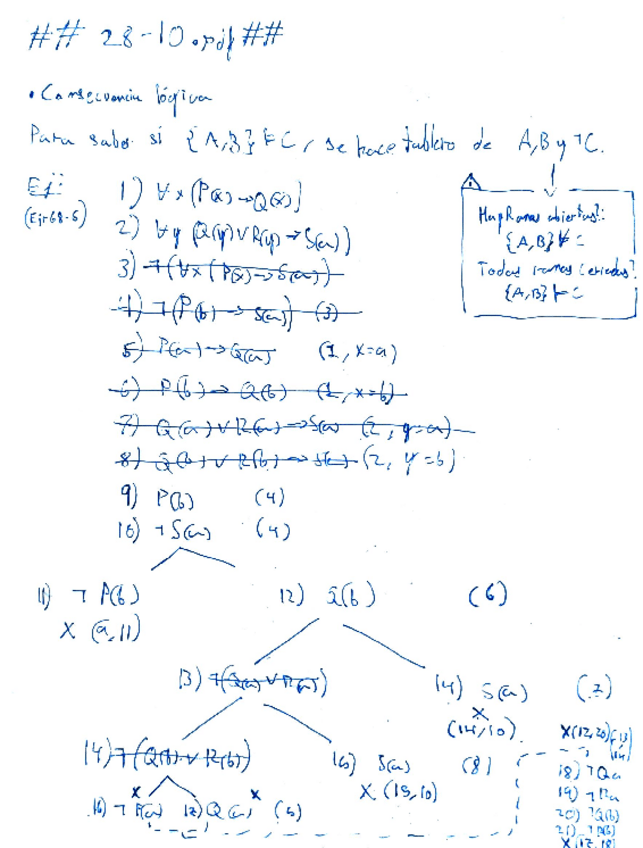 ## 28-10.pdf ##
• Consecuencia lógica
Para saber si {A,B} ⊨ C, se hace tablero de A,B y ¬C.
Ej:
(Ejr68-6)
1) ∀x (P(x)→Q(x))
2) ∀y (Q(y)∨R(y)→S(a))
3) ¬(∀x (P(x)→S(a))
4) ¬(P(b)→S(a)) (3)
5) P(a)→Q(a) (1, x=a)
6) P(b)→Q(b) (1, x=b)
7) Q(a)∨R(a)→S(a) (2, y=a)
8) Q(b)∨R(b)→S(a) (2, y=b)
9) P(b) (4)
10) ¬S(a) (4)
Hay Ramas abiertas?:
{A,B} ⊭ C
Todas ramas cerradas?
{A,B} ⊨ C
11) ¬P(b)
X (9,11)
12) Q(b) (6)
13) ¬(Q(a)∨R(a))
14) S(a) (7)
X
(14,10)
14) ¬(Q(b)∨R(b))
S(a) (8)
X (15,10)
16) ¬P(a) X
17) Q(a) X (5)
X(12,20)
18) ¬Qa
19) ¬Ra
20) ¬Q(b)
21) ¬R(b)
X(17,18)